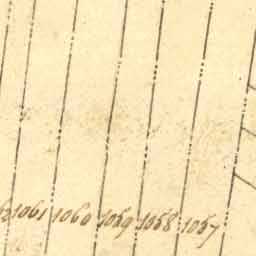 1061 1060 1059 1058 1057